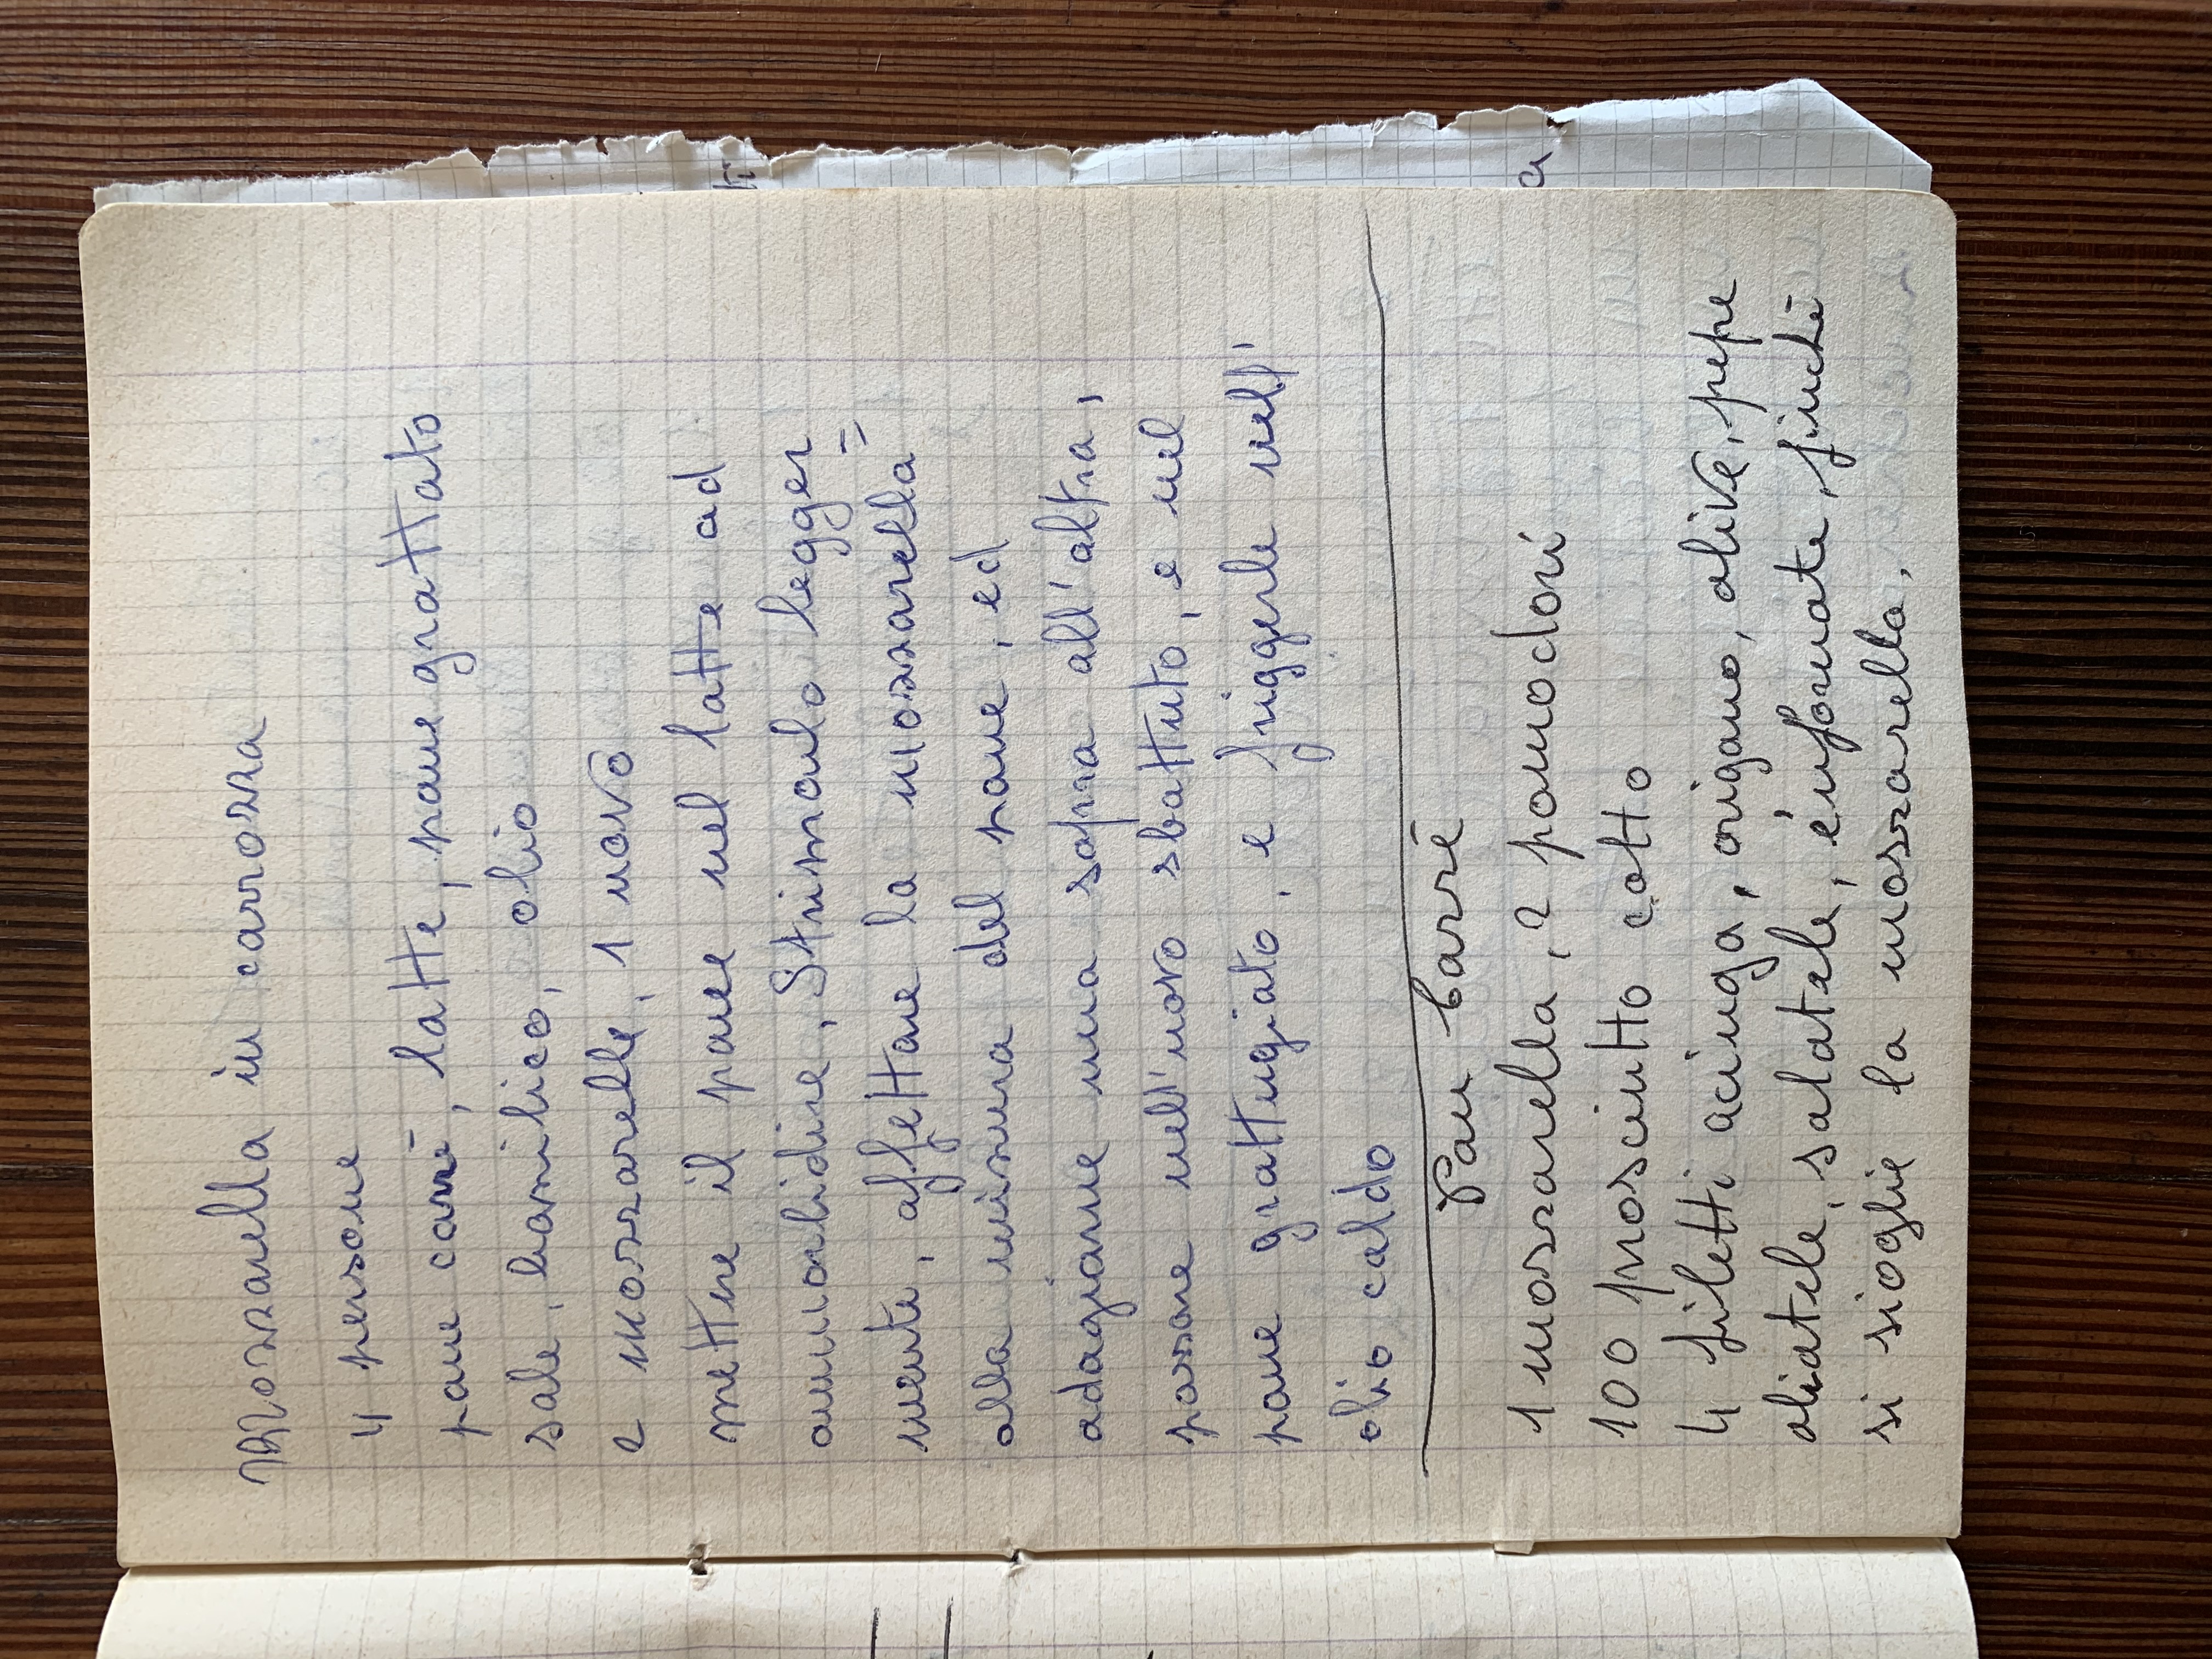 Mozzarella in carrozza
4 persone
pane carrè, latte, pane grattato
sale, basilico, olio
2 mozzarelle, 1 uovo
mettere il pane nel latte ad
ammorbidire, Strimarlo legger
=
mente, affettare la mozzarella
alla misura del pane, ed
adagiarne una sopra all'altra,
passare nell'uovo sbattuto, e nel
pane grattugiato, e friggerle nell'
olio caldo
Pan Carrè
1 mozzarella, 2 pomodori
100 prosciutto cotto
4 filetti aciuga, origano, olive, pepe
oliatele, salatele, e infornate, finchè
si sioglie la mozzarella.